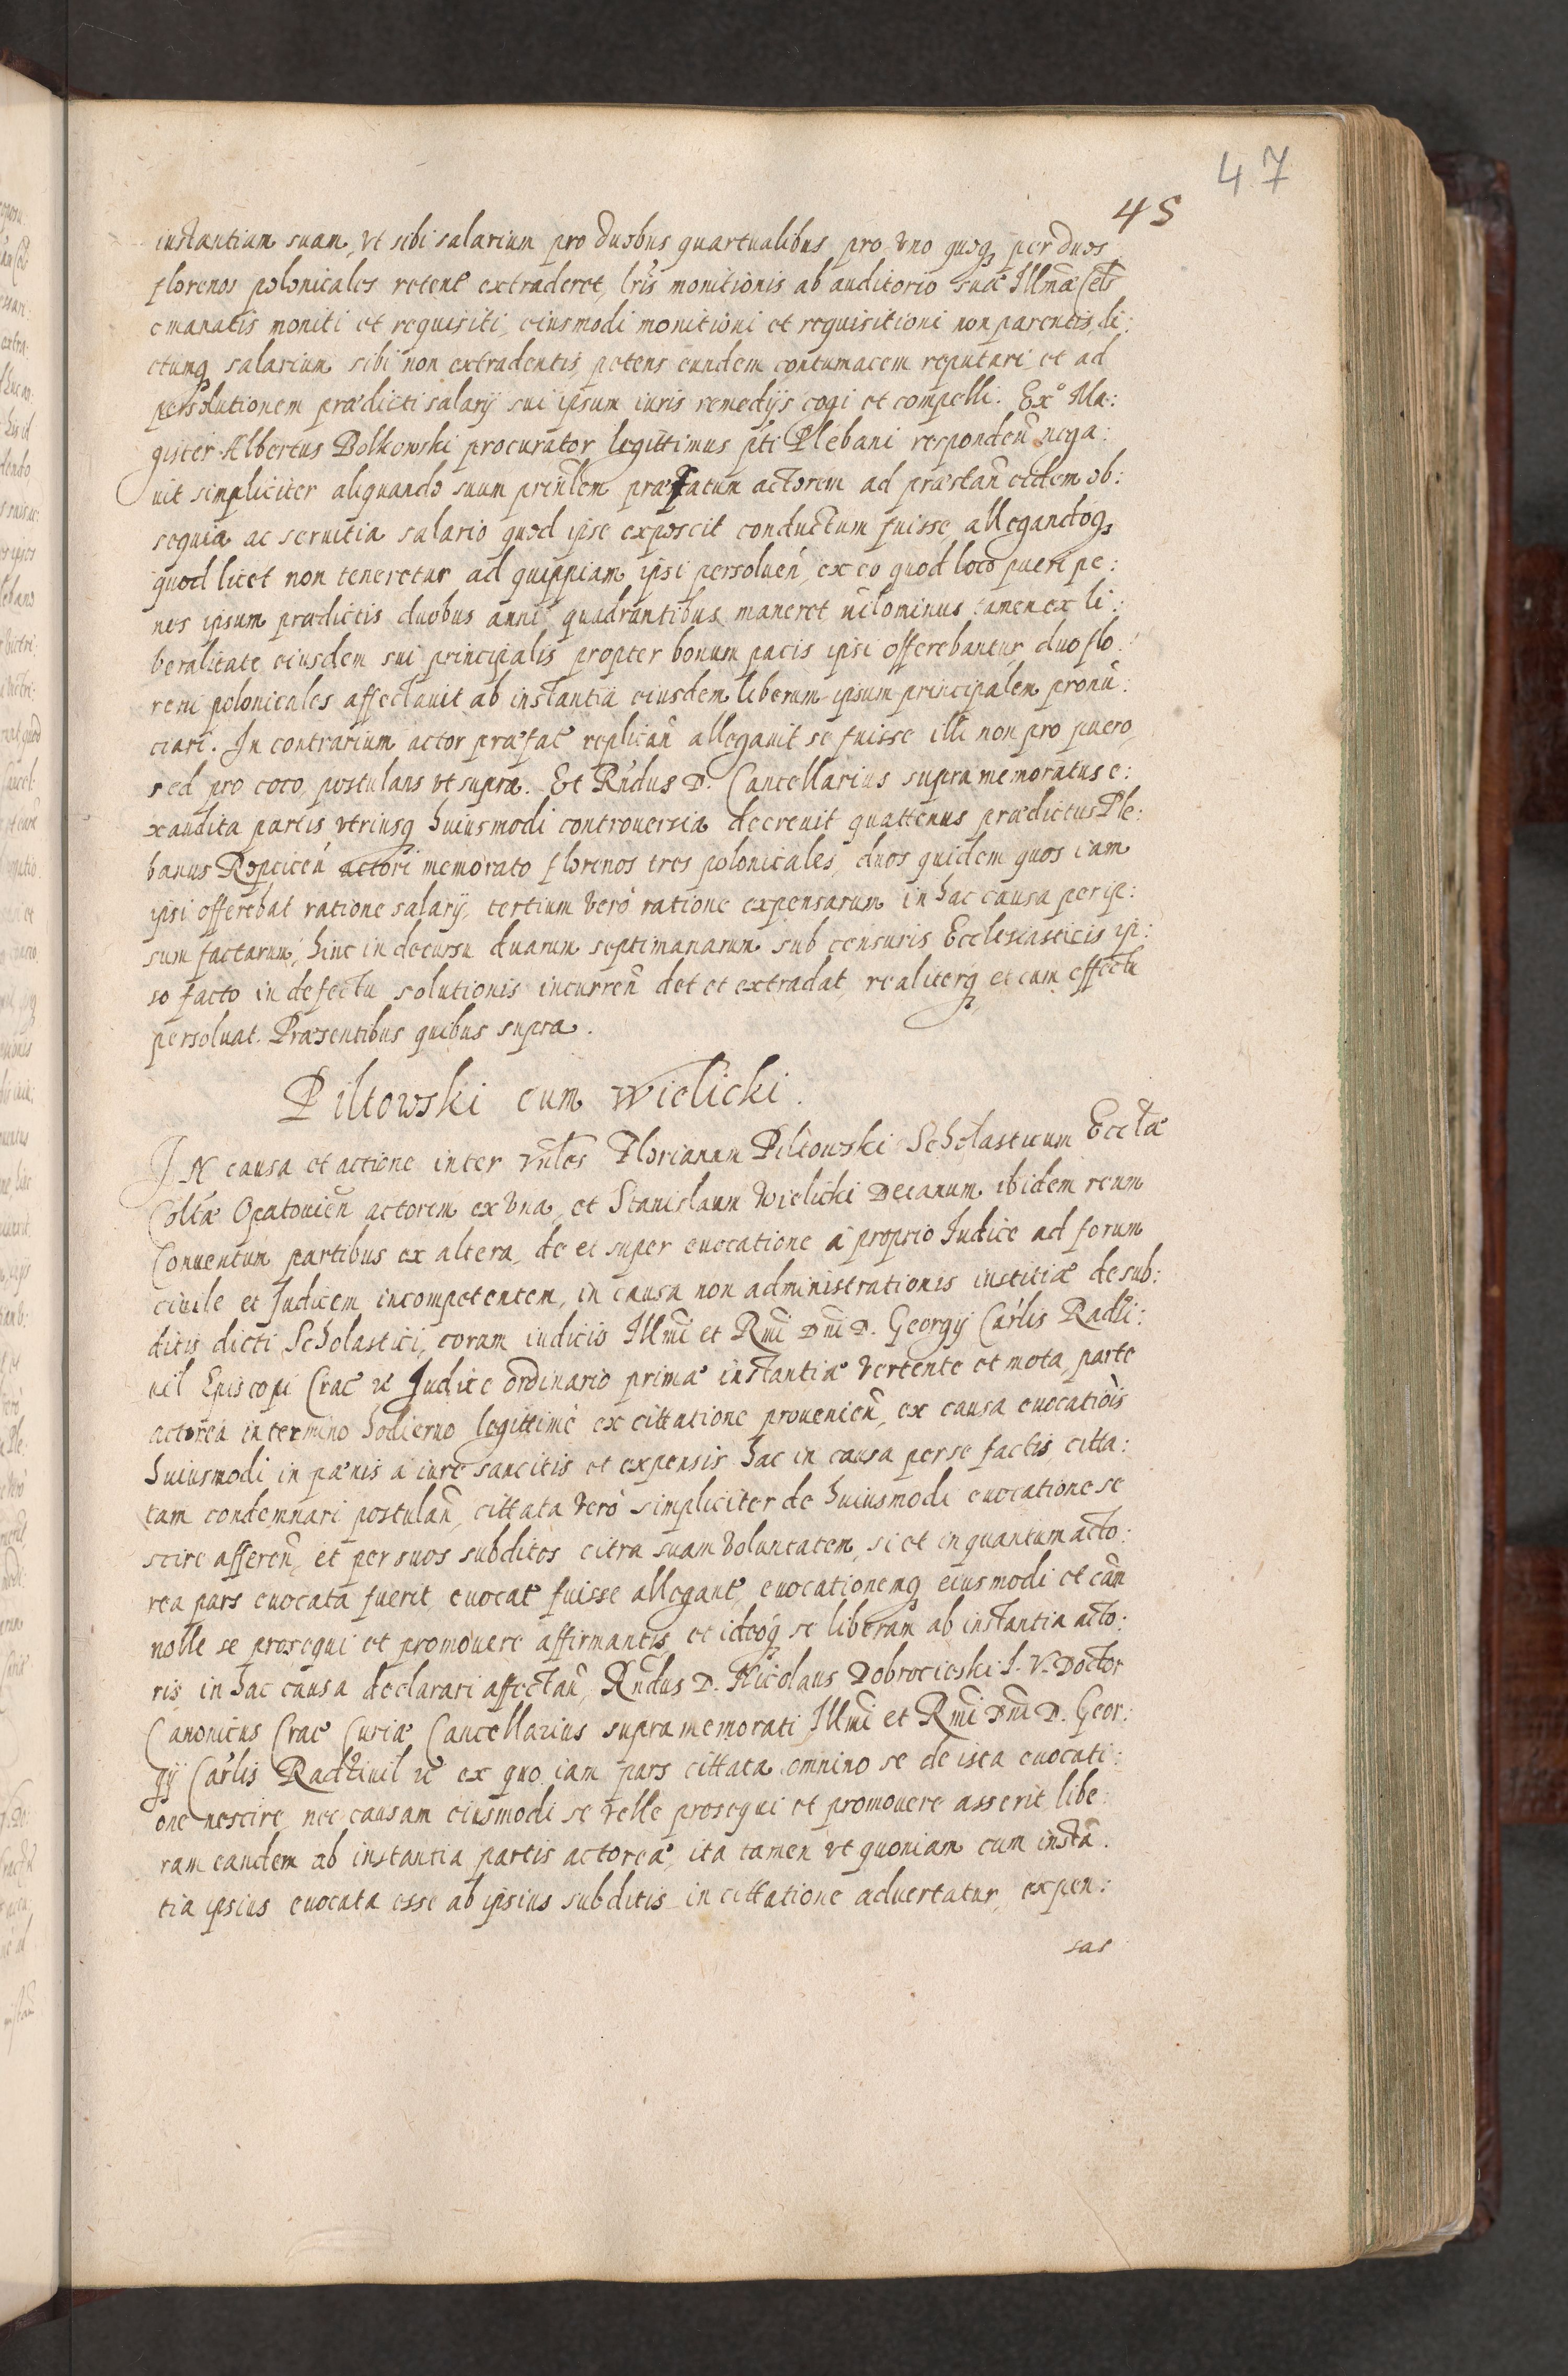 47
45
instantiam suam, vt sibi salarium pro duobus quartualibus pro vno quoq, per duos
florenos polonicales retent extraderet, lris monitionis ab auditorio suæ Illmæ Cels
emanatis moniti et requisiti, eiusmodi monitioni et requisitioni non parentis, di:
ctumq salarium sibi non extradentis, petens eundem contumacem reputari, et ad
persolutionem prædicti salarÿ sui ipsum iuris remedÿs cogi et compelli. Ex Ma:
gister Albertus Bolkowski procurator legittimus pti Plebani responden nega:
uit simpliciter aliquando suum prinlem præfatum actorem ad præstan eidem ob:
sequia ac seruitia salario quod ipse exposcit conductum fuisse, allegandoq
quod licet non teneretur ad quippiam ipsi persoluen, ex eo quod loco pueri pe:
nes ipsum prædictis duobus anni quadrantibus maneret nilominus tamen ex li:
beralitate eiusdem sui principalis propter bonum pacis ipsi offerebantur duo flo:
reni polonicales affectauit ab instantia eiusdem liberum ipsum principalem pronu:
ciari. In contrarium actor præfat replican allegauit se fuisse illi non pro puero,
sed pro coco, postulans vt supra. Et Rndus D. Cancellarius supra memoratus e:
xaudita partis vtriusq huiusmodi controuersia decreuit quattenus prædictus Ple:
banus Ropcicen actori memorato florenos tres polonicales, duos quidem quos iam
ipsi offerebat ratione salarÿ, tertium verò ratione expensarum in hac causa per ip:
sum factarum, hinc in decursu duarum septimanarum sub censuris Ecclesiasticis ip:
so facto in defectu solutionis incurren det et extradat, realiterq et cum effectu
persoluat. Præsentibus quibus supra.
Piltowski cum Wielicki.
IN causa et actione inter vnles Florianum Piltowski Scholasticum Ecclæ
Collæ Opatouien actorem ex vna, et Stanislaum Wielicki Decanum ibidem reum
Conuentum partibus ex altera, de et super euocatione à proprio Iudice ad forum
ciuile et Judicem incompetentem, in causa non administrationis iustitiæ de sub:
ditis dicti Scholastici, coram iudicio Illmi et Rmi Dni D. Georgÿ Carlis Radzi:
uil Episcopi Crac &c Judice ordinario primæ instantiæ vertente et mota, parte
actorea in termino hodierno legittimè ex cittatione prouenien, ex causa euocationis
huiusmodi in pænis à iure sancitis et expensis hac in causa per se factis, citta:
tam condemnari postulan, cittata verò simpliciter de huiusmodi euocatione se
scire afferen, et per suos subditos citra suam voluntatem, si et in quantum acto:
rea pars euocata fuerit, euocat fuisse allegant, euocationemq eiusmodi et can
nolle se prosequi et promouere affirmantis, et ideoq se liberam ab instantia acto:
ris in hac causa declarari affectan, Rndus D. Nicolaus Dobrocieski I. V. Doctor
Canonicus Crac Curiæ Cancellarius supra memorati Illmi et Rmi Dni D. Geor:
gÿ Carlis Radziuil &c ex quo iam pars cittata omnino se de ista euocati:
one nescire, nec causam eiusmodi se velle prosequi et promouere asserit, libe:
ram eandem ab instantia partis actoreæ, ita tamen vt quoniam cum insta.
tia ipsius euocata esse ab ipsius subditis in cittatione aduertatur, expen:
sas